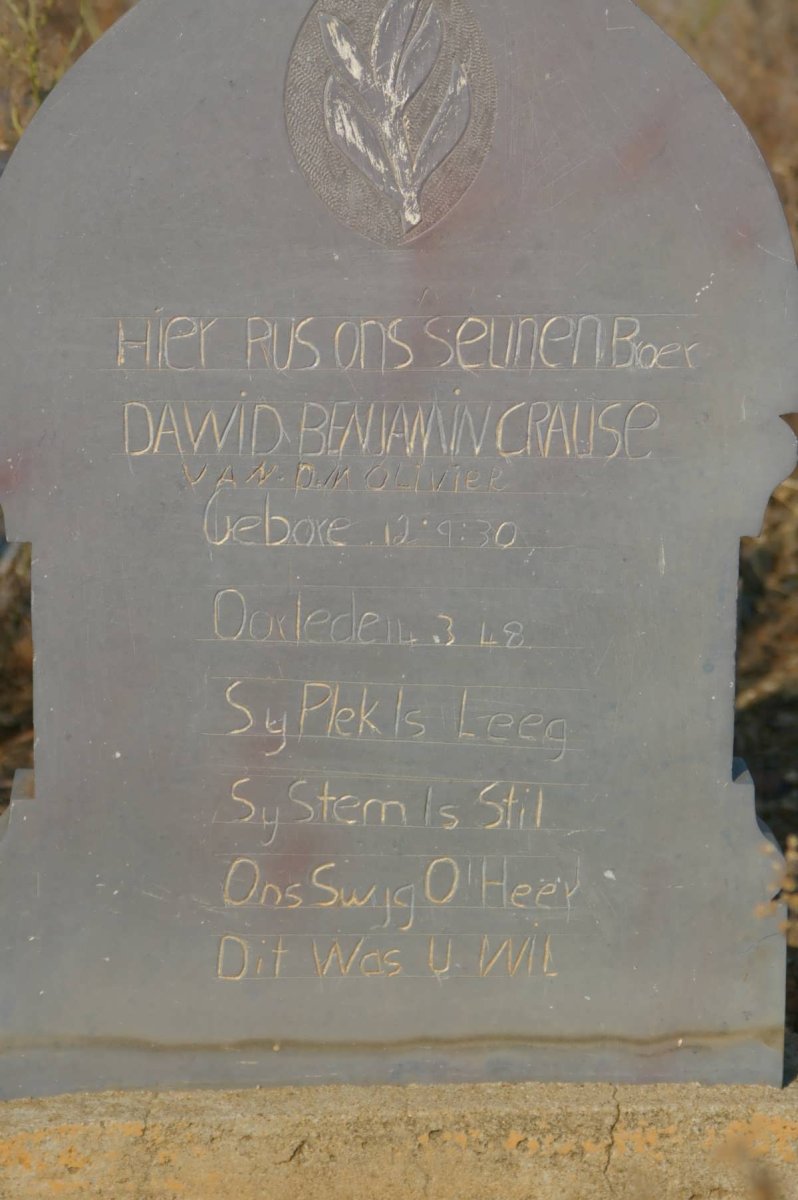 Hier RUS ONS SEUN EN Broer
DAWID BENJAMIN CRAUSE
VAN. D.M OLIVIER
Gebore 12.9.30
Oorlede 14.3 48
Sy Plek Is Leeg
Sy Stem Is Stil
Ons Swyg O' Heer
Dit Was U Wil